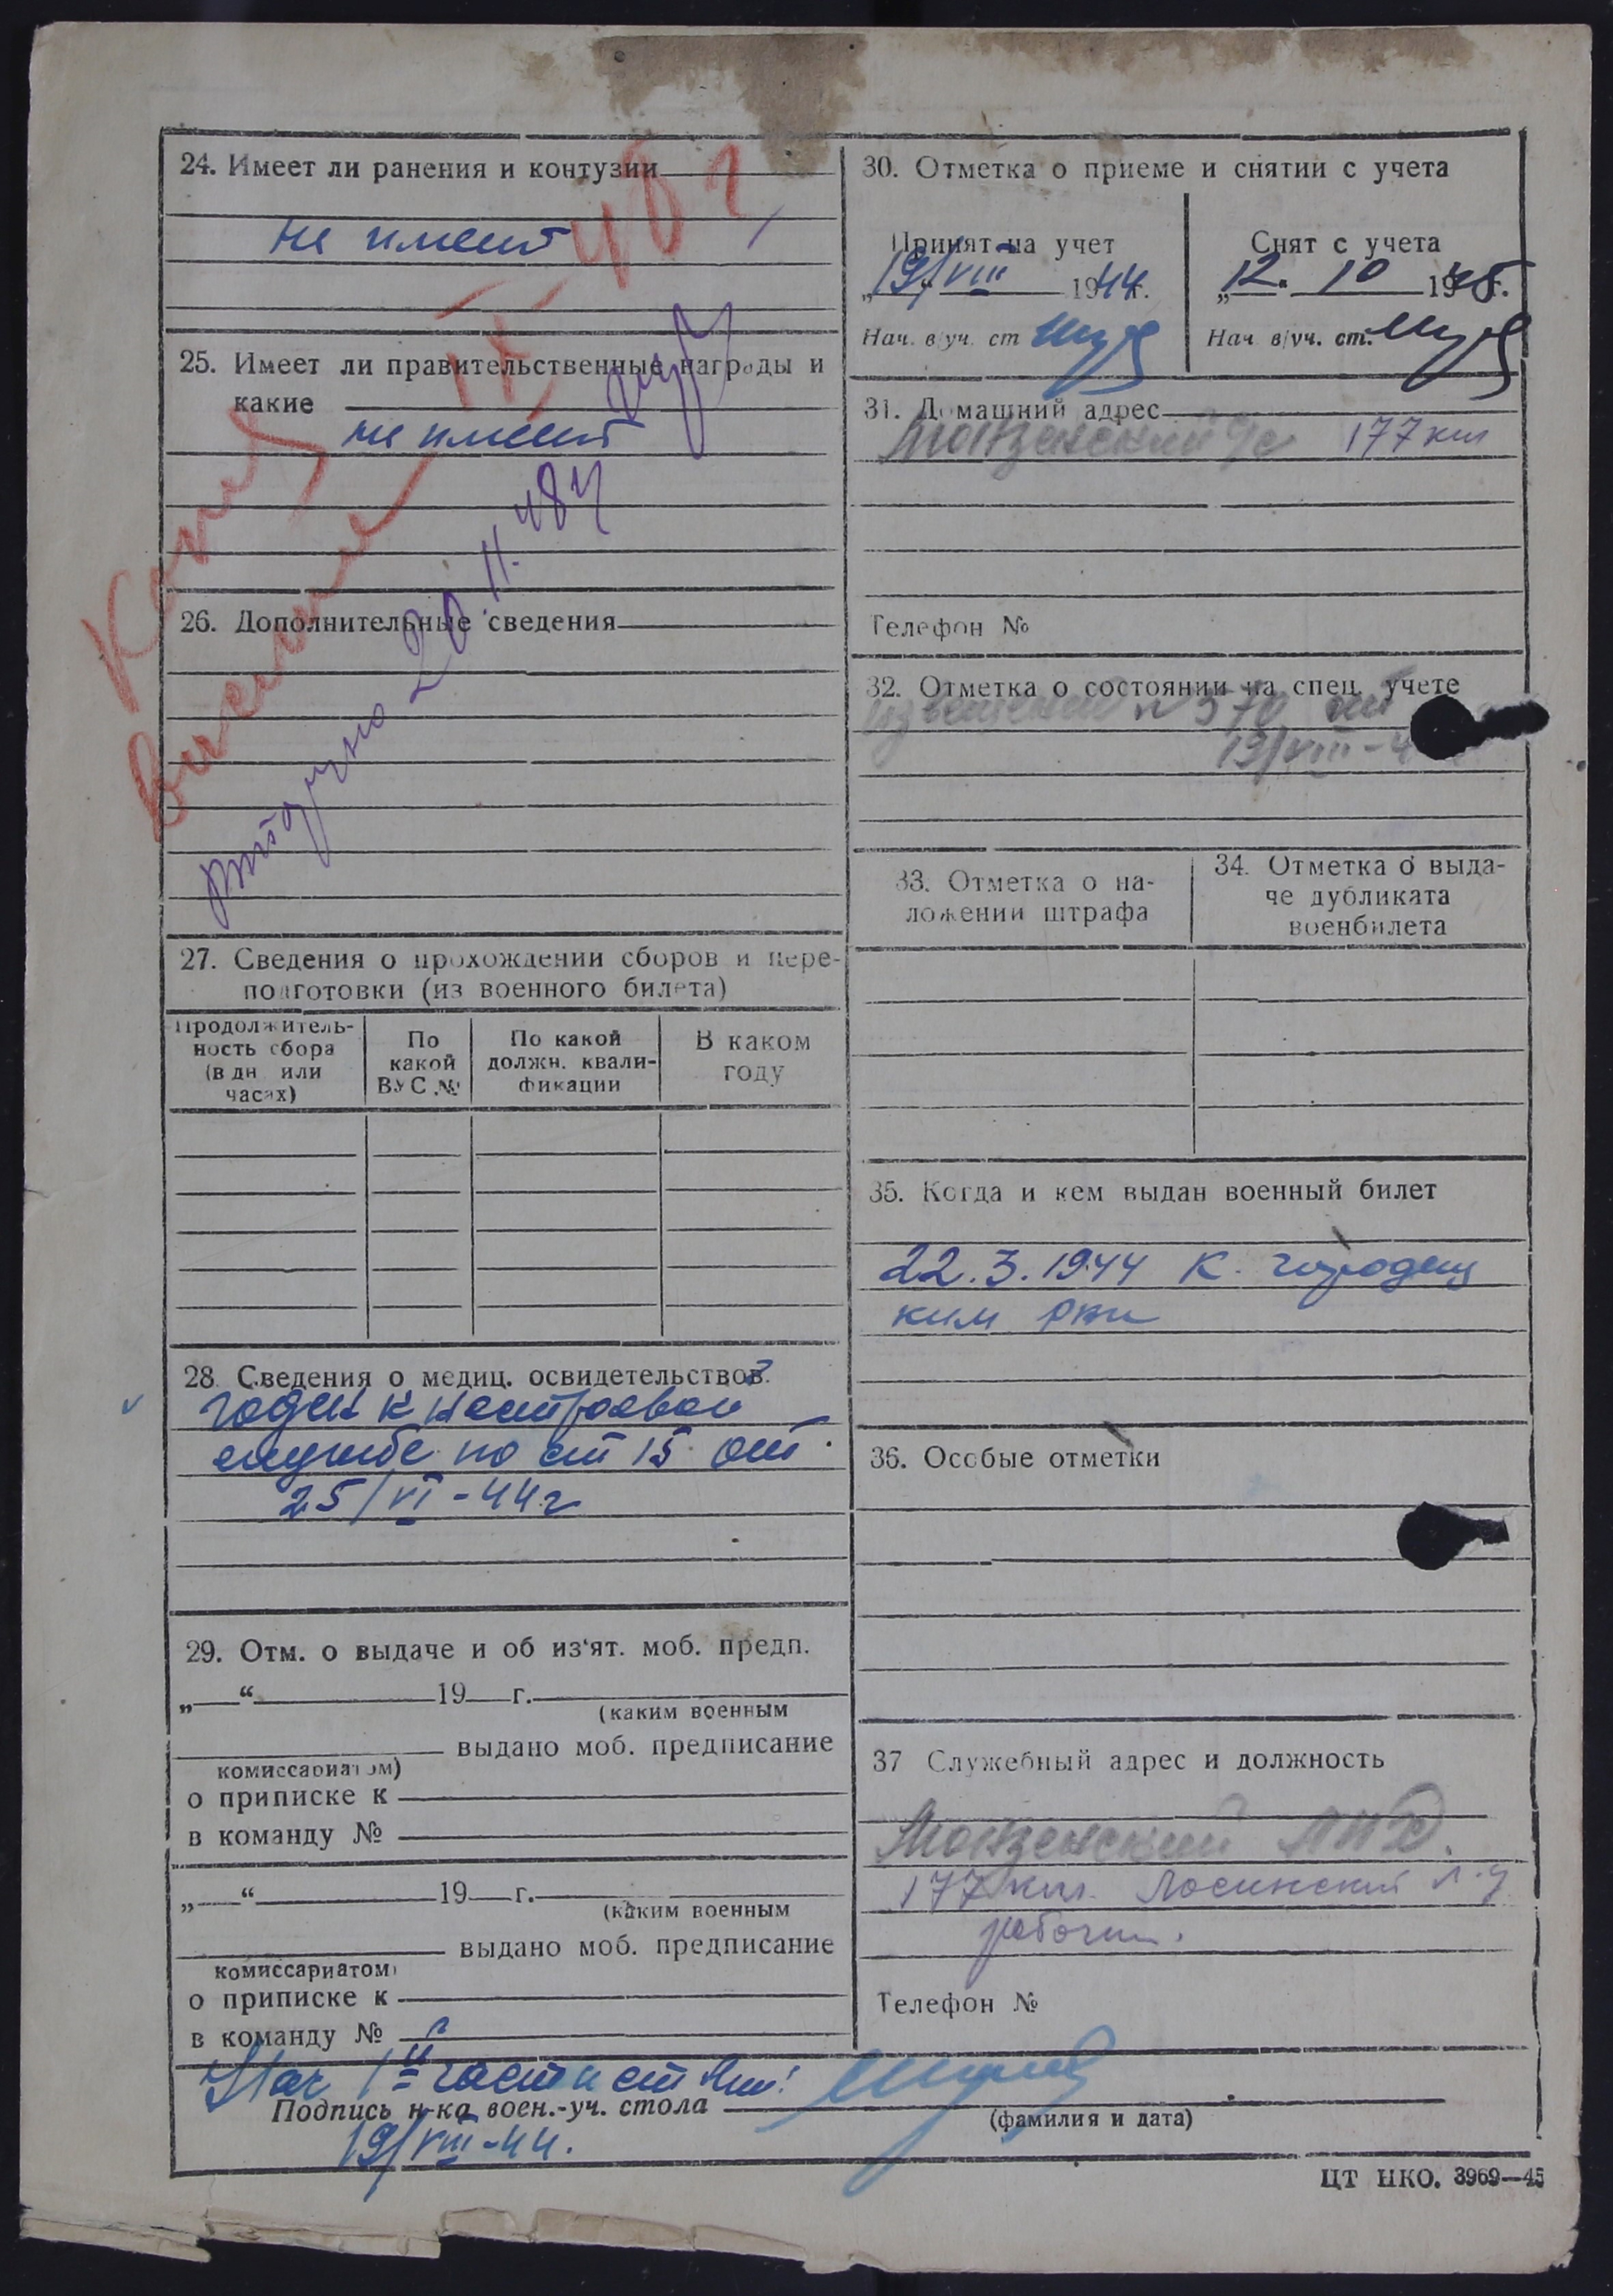 24. Имеет ли ранения и контузии
не имеет
25. Имеет ли правительственные награды и
какие
не имеет
26. Дополнительные сведения
20.11.48г
IX 48 г
27. Сведения о прохождении сборов и пере-
подготовки (из военного билета)
Продолжитель-
ность сбора
(в дн. или
часах)
По
какой
ВУС №
По какой
должн. квали-
фикации
В каком
году
28. Сведения о медиц. освидетельствов.
годен к нестроевой
службе по ст 15 от
25/VI-44г
29. Отм. о выдаче и об из'ят. моб. предп.
„ “ 19 г.
(каким военным
выдано моб. предписание
комиссариатом)
о приписке к
в команду №
„ “ 19 г.
(каким военным
выдано моб. предписание
комиссариатом)
о приписке к
в команду №
30. Отметка о приеме и снятии с учета
Принят на учет
„19/VIII 1944г.
Нач. в/уч. ст.
Снят с учета
„12. 10 1945г.
Нач. в/уч. ст.
31. Домашний адрес
Монзенский 177 км
Телефон №
32. Отметка о состоянии на спец. учете
извещение № 370 от
19/VIII-4
33. Отметка о на-
ложении штрафа
34. Отметка о выда-
че дубликата
военбилета
35. Когда и кем выдан военный билет
22.3.1944 К. городец
ким рвк
36. Особые отметки
37 Служебный адрес и должность
Монзенский
177 км. Лосинский л.у
рабочий.
Телефон №
Нач 1й части
Подпись н-ка воен.-уч. стола
(фамилия и дата)
19/VIII-44.
ЦТ НКО. 3969—45